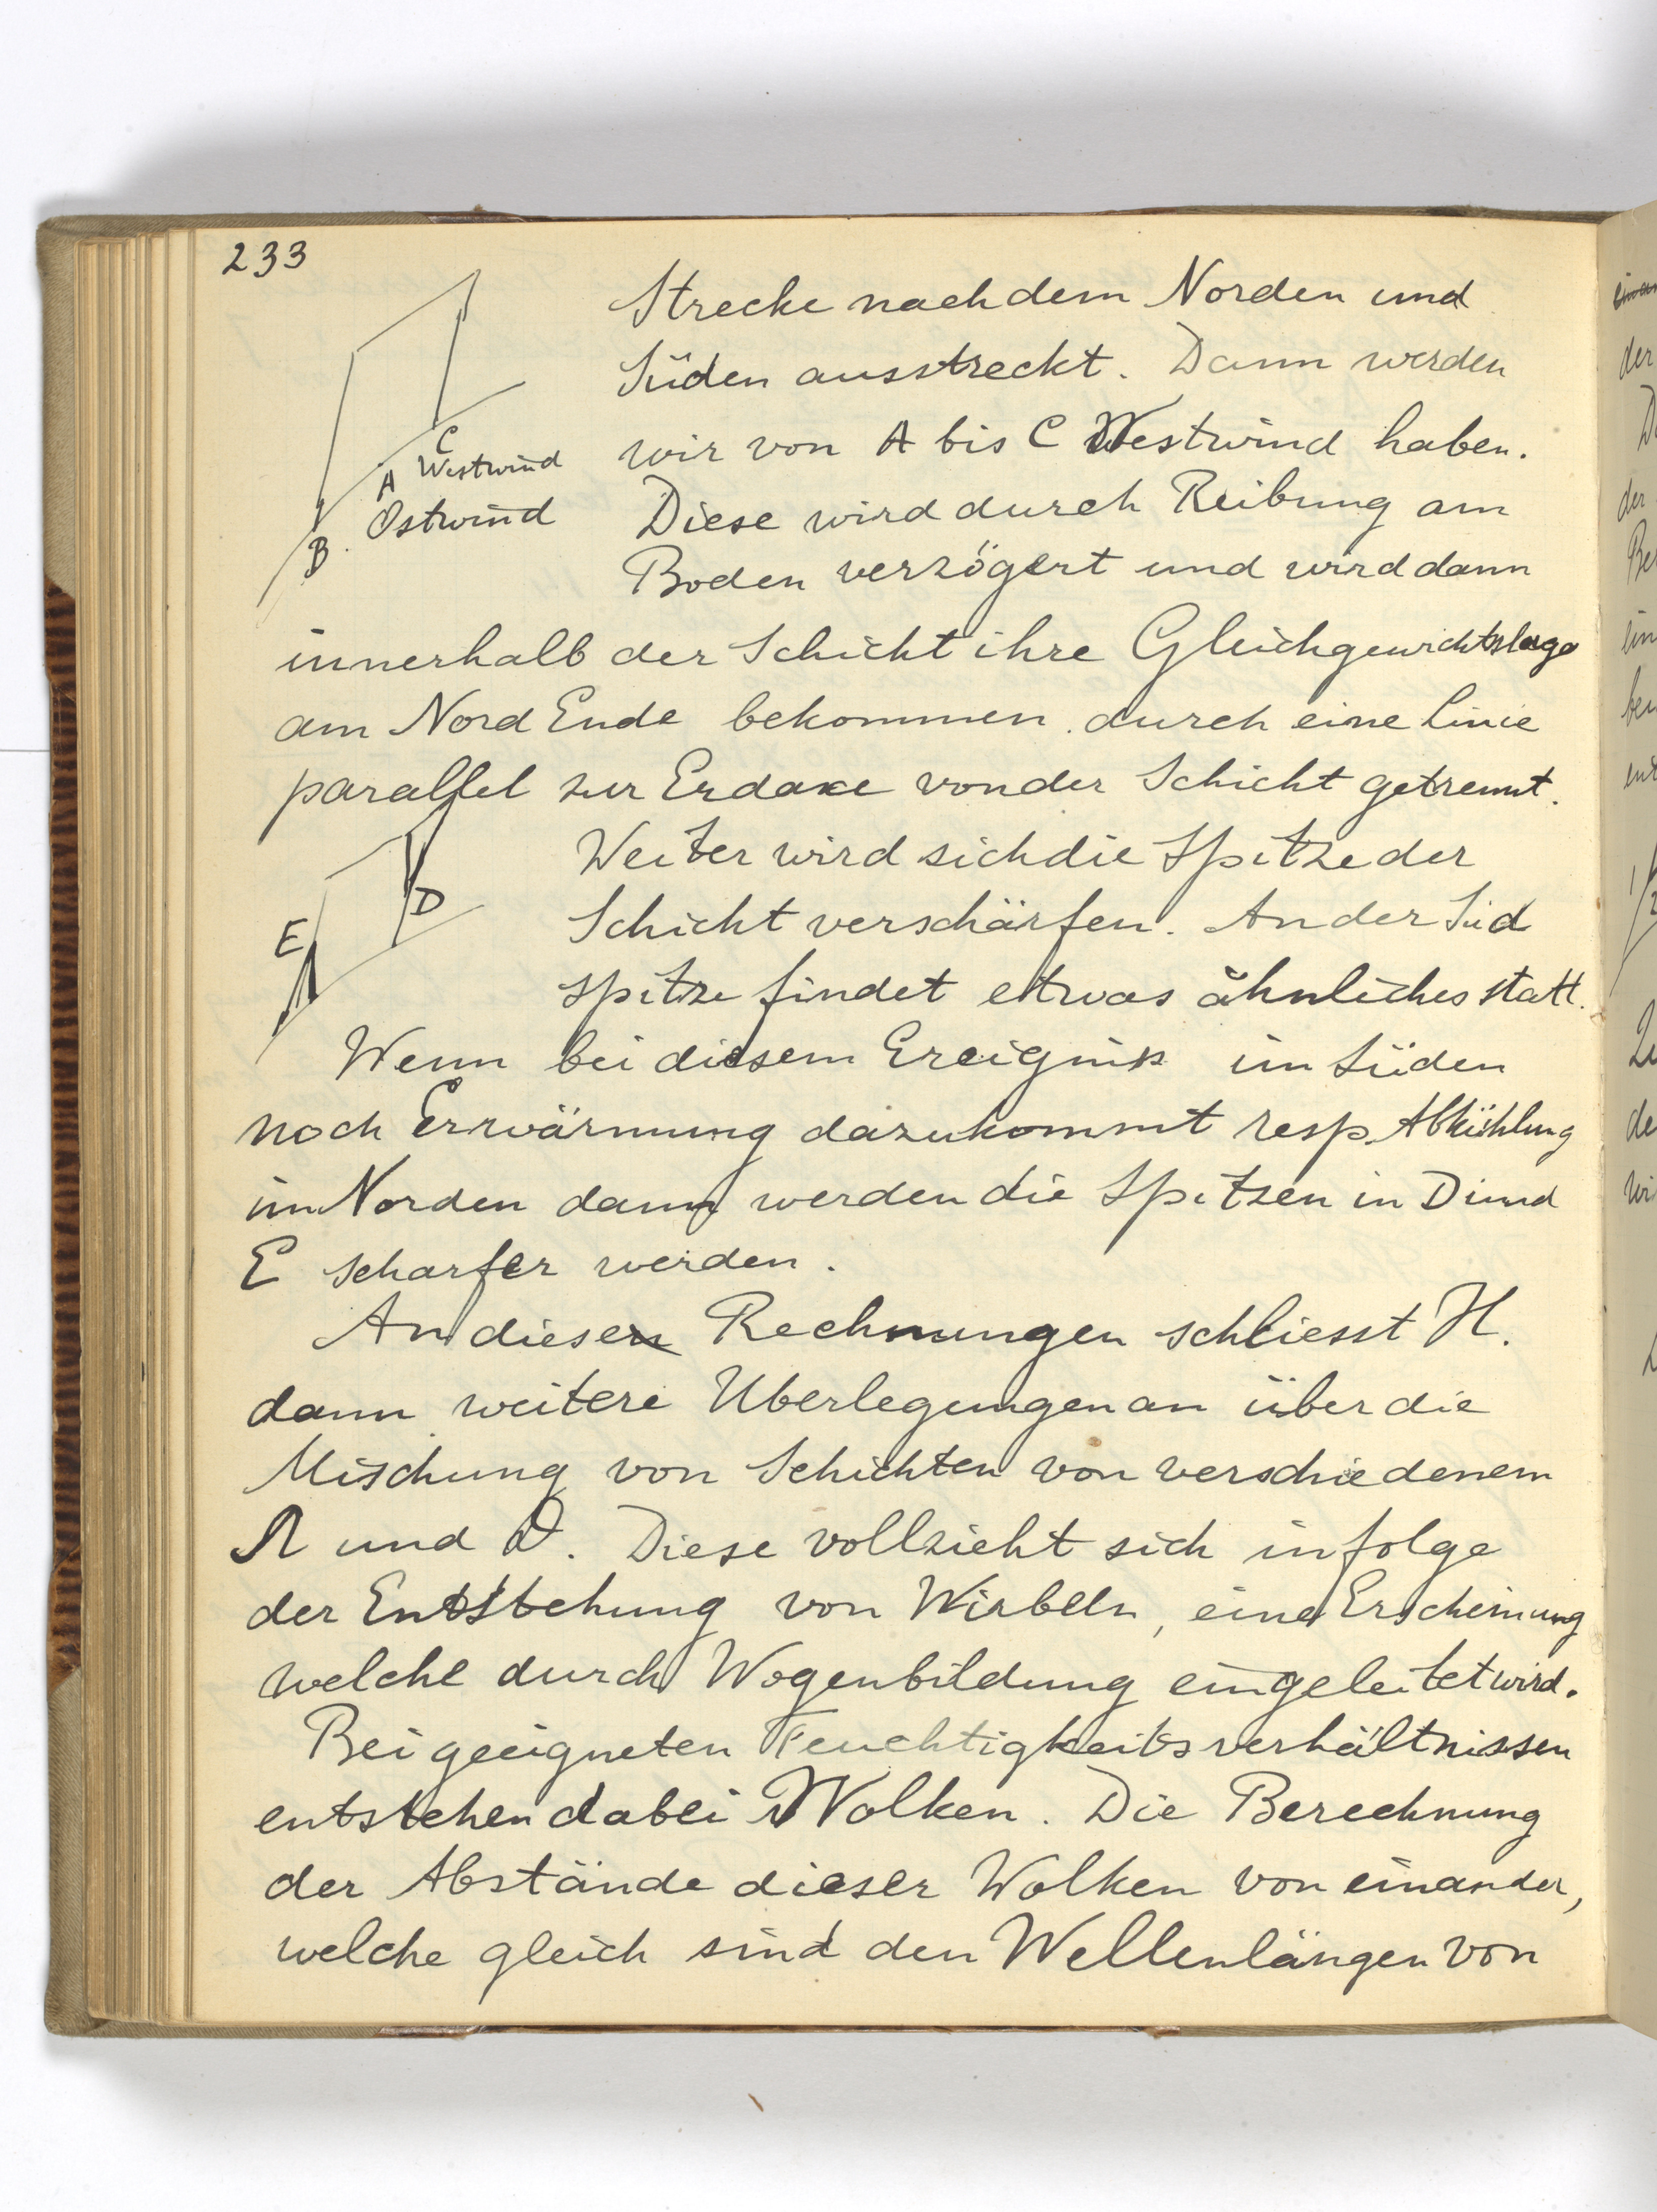 233
Strecke nach dem Norden und
Süden ausstreckt. Dann werden
wir von A bis C Westwind haben.
C
A Westwind
Ostwind
B
Diese wird durch Reibung am
Boden verzögert und wird dann
innerhalb der Schicht ihre Gleichgewichtslage
am Nord Ende bekommen durch eine Linie
parallel zur Erdaxe von der Schicht getrennt.
Weiter wird sich die Spitze der
D
E
Schicht verschärfen. An der Süd
spitze findet etwas ähnliches statt.
Wenn bei diesem Ereignis im Süden
noch Erwärmung dazukommt resp. Abkühlung
im Norden dann werden die Spitzen in D und
E scharfer werden.
An diesen Rechnungen schliesst H.
dann weitere Uberlegungen an über die
Mischung von Schichten von verschiedenem
Ω und ϑ. Diese vollzieht sich infolge
der Entstehung von Wirbeln, eine Erscheinung
welche durch Wogenbildung eingeleitet wird.
Bei geeigneten Feuchtigkeitsverhältnissen
entstehen dabei Wolken. Die Berechnung
der Abstände dieser Wolken von einander,
welche gleich sind den Wellenlängen von